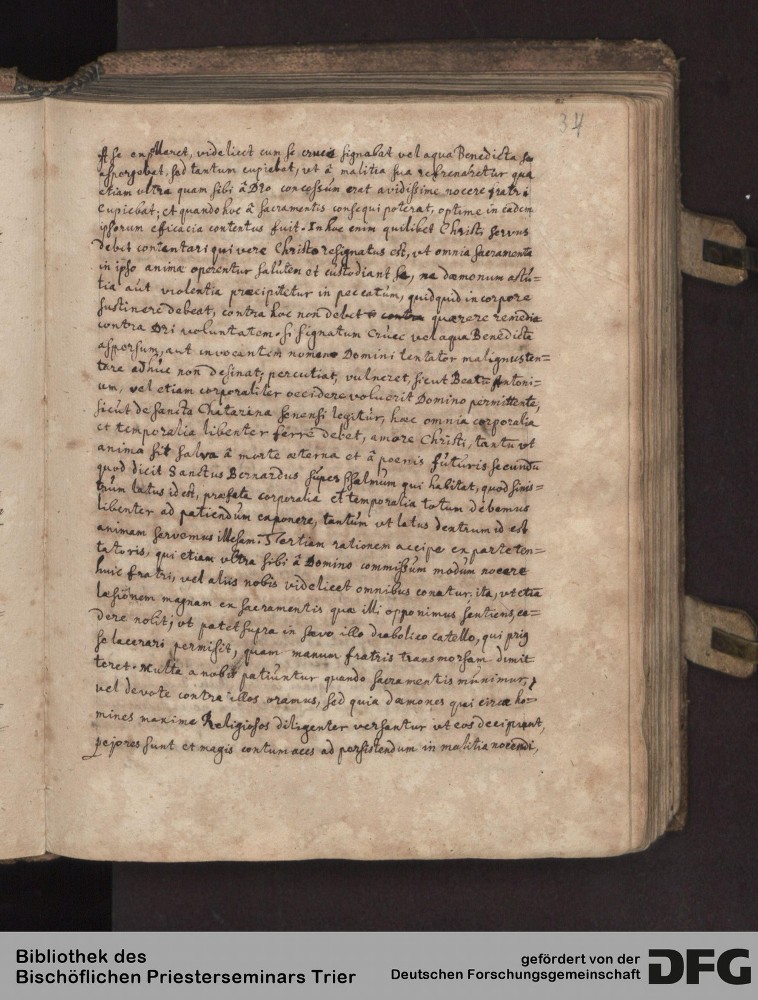 34
à se expelleret, videlicet cum se cruce signabat vel aqua Benedicta se
aspergebat, sed tantum cupiebat, ut â malitia sua refrenaretur qua
etiam ultra quam sibi â Deo concessum erat avidissime nocere fratri
cupiebat, et quando hoc â sacramentis consequi poterat, optime in eadem
ipsorum efficacia contentus fuit. In hoc enim quilibet Christi servus
debet contentari qui vere Christo resignatus est, ut omnia sacramenta
in ipso animæ operentur salutem et custodiant se, ne dæmonum astu=
tia aut violentia præcipitetur in peccatum, quidquid in corpore
sustinere debeat, contra hoc non debet quærere remedia
contra Dei voluntatem. si signatum cruce vel aqua Benedicta
aspersum, aut invocantem nomen Domini tentator malignus ten=
tare adhuc non desinat, percutiat, vulneret, sicut Beat: Antoni=
um, vel etiam corporaliter occidere voluerit Domino permittente,
sicut de sancta Chatarina senensi legitur, hæc omnia corporalia
et temporalia libenter ferre debet, amore Christi, tantu ut
anima sit salva â morte æterna et â poenis futuris secundu
quod dicit Sanctus Bernardus super psalmum qui habitat, quod sinis=
trum latus id est, præfata corporalia et temporalia totum debemus
libenter ad patiendum exponere, tantum ut latus dextrum id est
animam servemus illesam. Tertiam rationem accipe ex parte ten=
tatoris, qui etiam ultra sibi â Domino commissum modum nocere
huic fratri, vel aliis nobis videlicet omnibus conatur, ita, ut etia
læsionem magnam ex sacramentis quæ illi opponimus sentiens, ce=
dere nolit; ut patet supra in sævo illo diabolico catello, qui prius
se lacerari permisit, quam manum fratris transmorsam dimit=
teret. Multa a nobis patiuntur quando sacramentis munimur,
vel devote contra illos oramus, sed quia dæmones qui circa ho=
mines maxime Religiosos diligenter versantur ut eos decipiant,
pejores sunt et magis contumaces ad persistendum in malitia nocendi,
Bibliothek des
Bischöflichen Priesterseminars Trier
gefördert von der
Deutschen Forschungsgemeinschaft
DFG